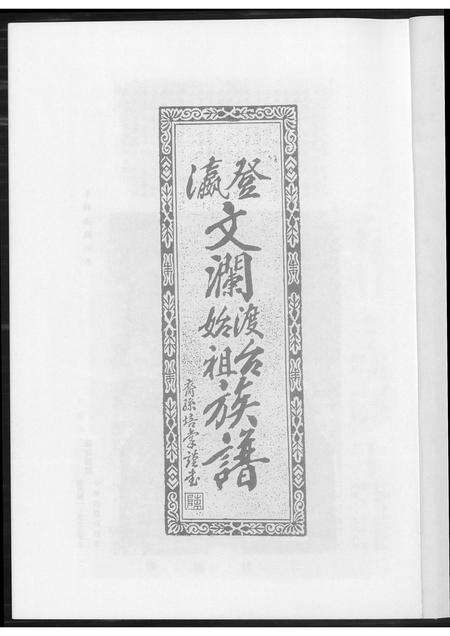 登瀛
文瀾
渡台
始祖
族譜
裔孫培棠謹書